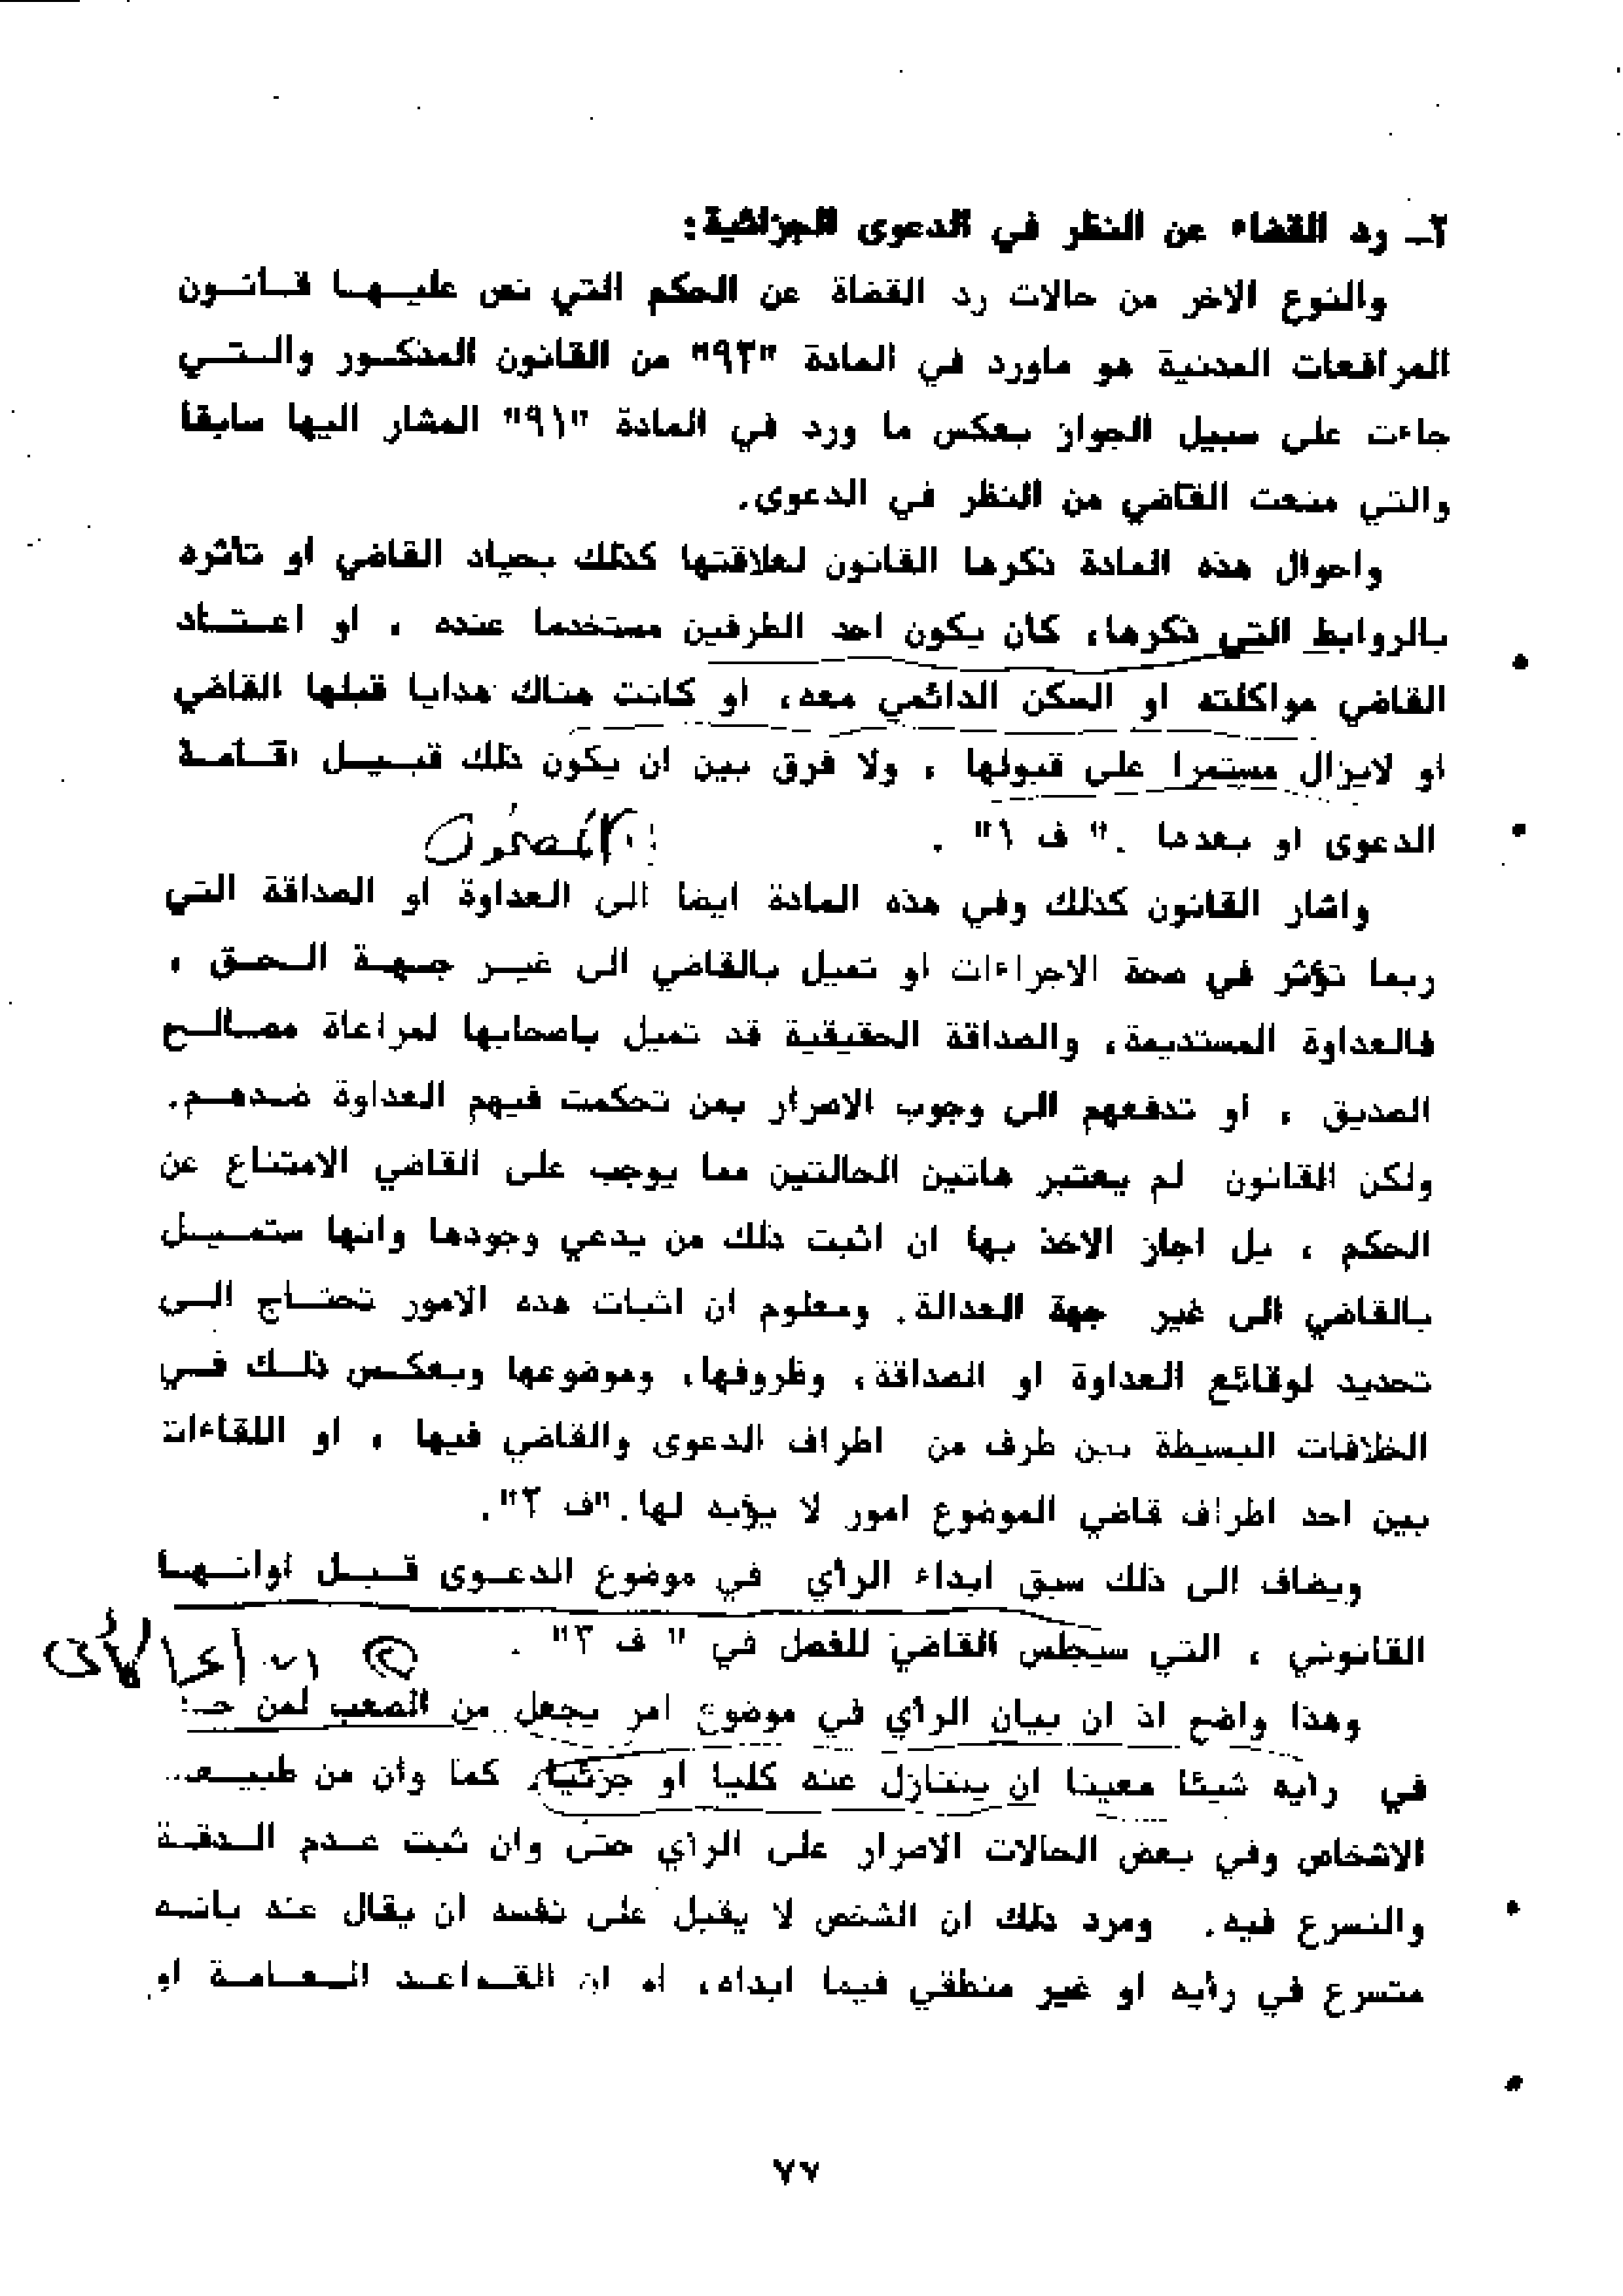 ٢ـ رد القضاء عن النظر في الدعوى الجزائية:
والنوع الاخر من حالات رد القضاة عن الحكم التي نص عليـها قـانـون
المرافعات المدنية هو ماورد في المادة "٩٣" من القانون المذكـور والـتـي
جاءت على سبيل الجواز بعكس ما ورد في المادة "٩١" المشار اليها سابقا
والتي منعت القاضي من النظر في الدعوى.
واحوال هذه المادة ذكرها القانون لعلاقتها كذلك بحياد القاضي او تأثره
بالروابط التي ذكرها، كأن يكون احد الطرفين مستخدما عنده ، او اعـتـاد
القاضي مواكلته او السكن الدائمي معه، او كانت هناك هدايا قبلها القاضي
او لايزال مستمرا على قبولها ، ولا فرق بين ان يكون ذلك قبـيـل اقـامـة
الدعوى او بعدها ." ف ١" .
واشار القانون كذلك وفي هذه المادة ايضا الى العداوة او الصداقة التي
ربما تؤثر في صحة الاجراءات او تميل بالقاضي الى غيـر جـهـة الـحـق ،
فالعداوة المستديمة، والصداقة الحقيقية قد تميل باصحابها لمراعاة مصـالـح
الصديق ، او تدفعهم الى وجوب الاصرار بمن تحكمت فيهم العداوة ضـدهـم.
ولكن القانون لم يعتبر هاتين الحالتين مما يوجب على القاضي الامتناع عن
الحكم ، بل اجاز الاخذ بها ان اثبت ذلك من يدعي وجودها وانها ستمـيـل
بالقاضي الى غير جهة العدالة. ومعلوم ان اثبات هذه الامور تحتـاج الـى
تحديد لوقائع العداوة او الصداقة، وظروفها، وموضوعها وبعكـس ذلـك فـي
الخلافات البسيطة بين طرف من اطراف الدعوى والقاضي فيها ، او اللقاءات
بين احد اطراف قاضي الموضوع امور لا يؤبه لها."ف ٢".
ويضاف الى ذلك سبق ابداء الرأي في موضوع الدعـوى قـبـل اوانـهـا
القانوني ، التي سيجلس القاضي للفصل في " ف ٣" .
وهذا واضح اذ ان بيان الرأي في موضوع امر يجعل من الصعب لمن
في رأيه شيئا معينا ان يتنازل عنه كليا او جزئيا، كما وان من
الاشخاص وفي بعض الحالات الاصرار على الرأي حتى وان ثبت عـدم الـدقـة
والتسرع فيه. ومرد ذلك ان الشخص لا يقبل على نفسه ان يقال عنه بانـه
متسرع في رأيه او غير منطقي فيما ابداه، او ان القـواعـد الـعـامـة او
٧٧